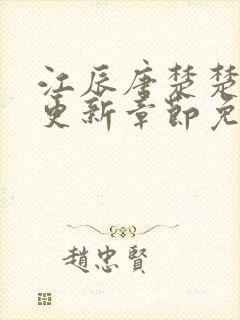 江辰唐楚楚
更新章节免
趙忠賢